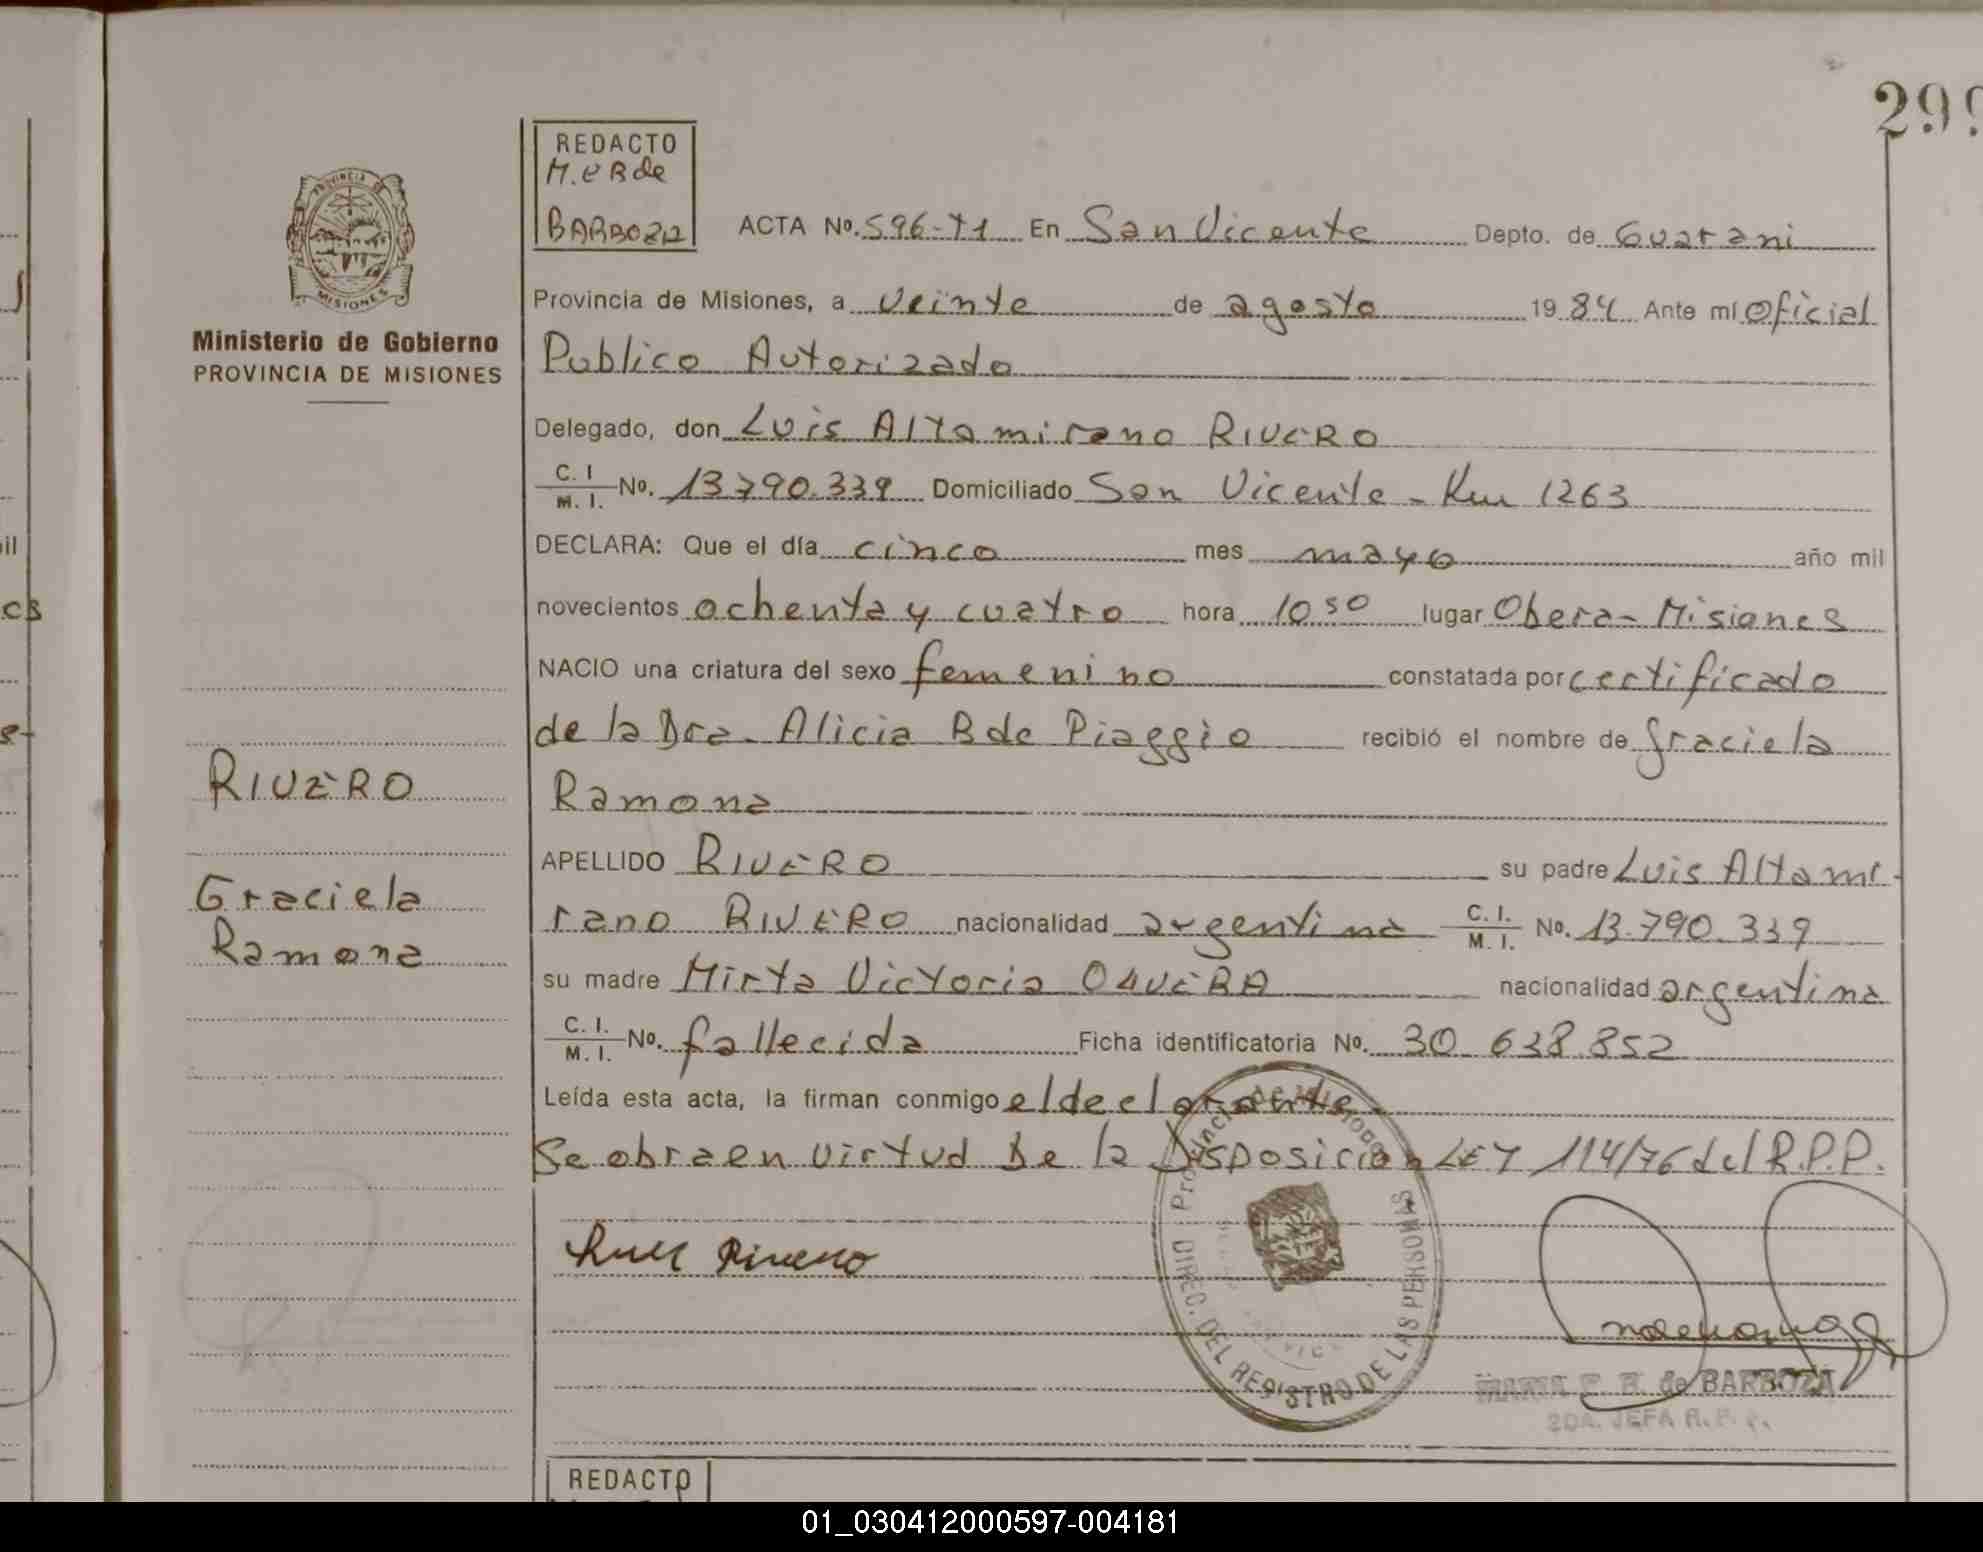 299
REDACTO
M. E R de
BARBOZA
ACTA No. 596-T1 En San Vicente Depto. de Guarani
PROVINCIA DE
MISIONES
Provincia de Misiones, a veinte de agosto 1984 Ante mí oficial
Ministerio de Gobierno
PROVINCIA DE MISIONES
Publico Autorizado
Delegado, don Luis Altamirano RIVERO
C. I / M. I. No. 13790.339 Domiciliado San Vicente - Km 1263
DECLARA: Que el día cinco mes mayo año mil
novecientos ochenta y cuatro hora 10 50 lugar Obera - Misiones
NACIO una criatura del sexo femenino constatada por certificado
de la Dra. Alicia B de Piaggio recibió el nombre de Graciela
Ramona
RIVERO
APELLIDO RIVERO su padre Luis Altami
Graciela
Ramona
rano RIVERO nacionalidad argentina C. I. / M. I. No. 13.790.339
su madre Mirta Victoria OLIVERA nacionalidad argentina
C. I. / M. I. No. fallecida Ficha identificatoria No. 30 638.852
Leída esta acta, la firman conmigo el declarante.
Se obra en virtud De la Disposicion LEY 114/76 del R.P.P.
Luis Rivero
DIREC. DEL REGISTRO DE LAS PERSONAS
MARIA E. R. de BARBOZA
2DA. JEFA R. P. P.
REDACTO
01_030412000597-004181